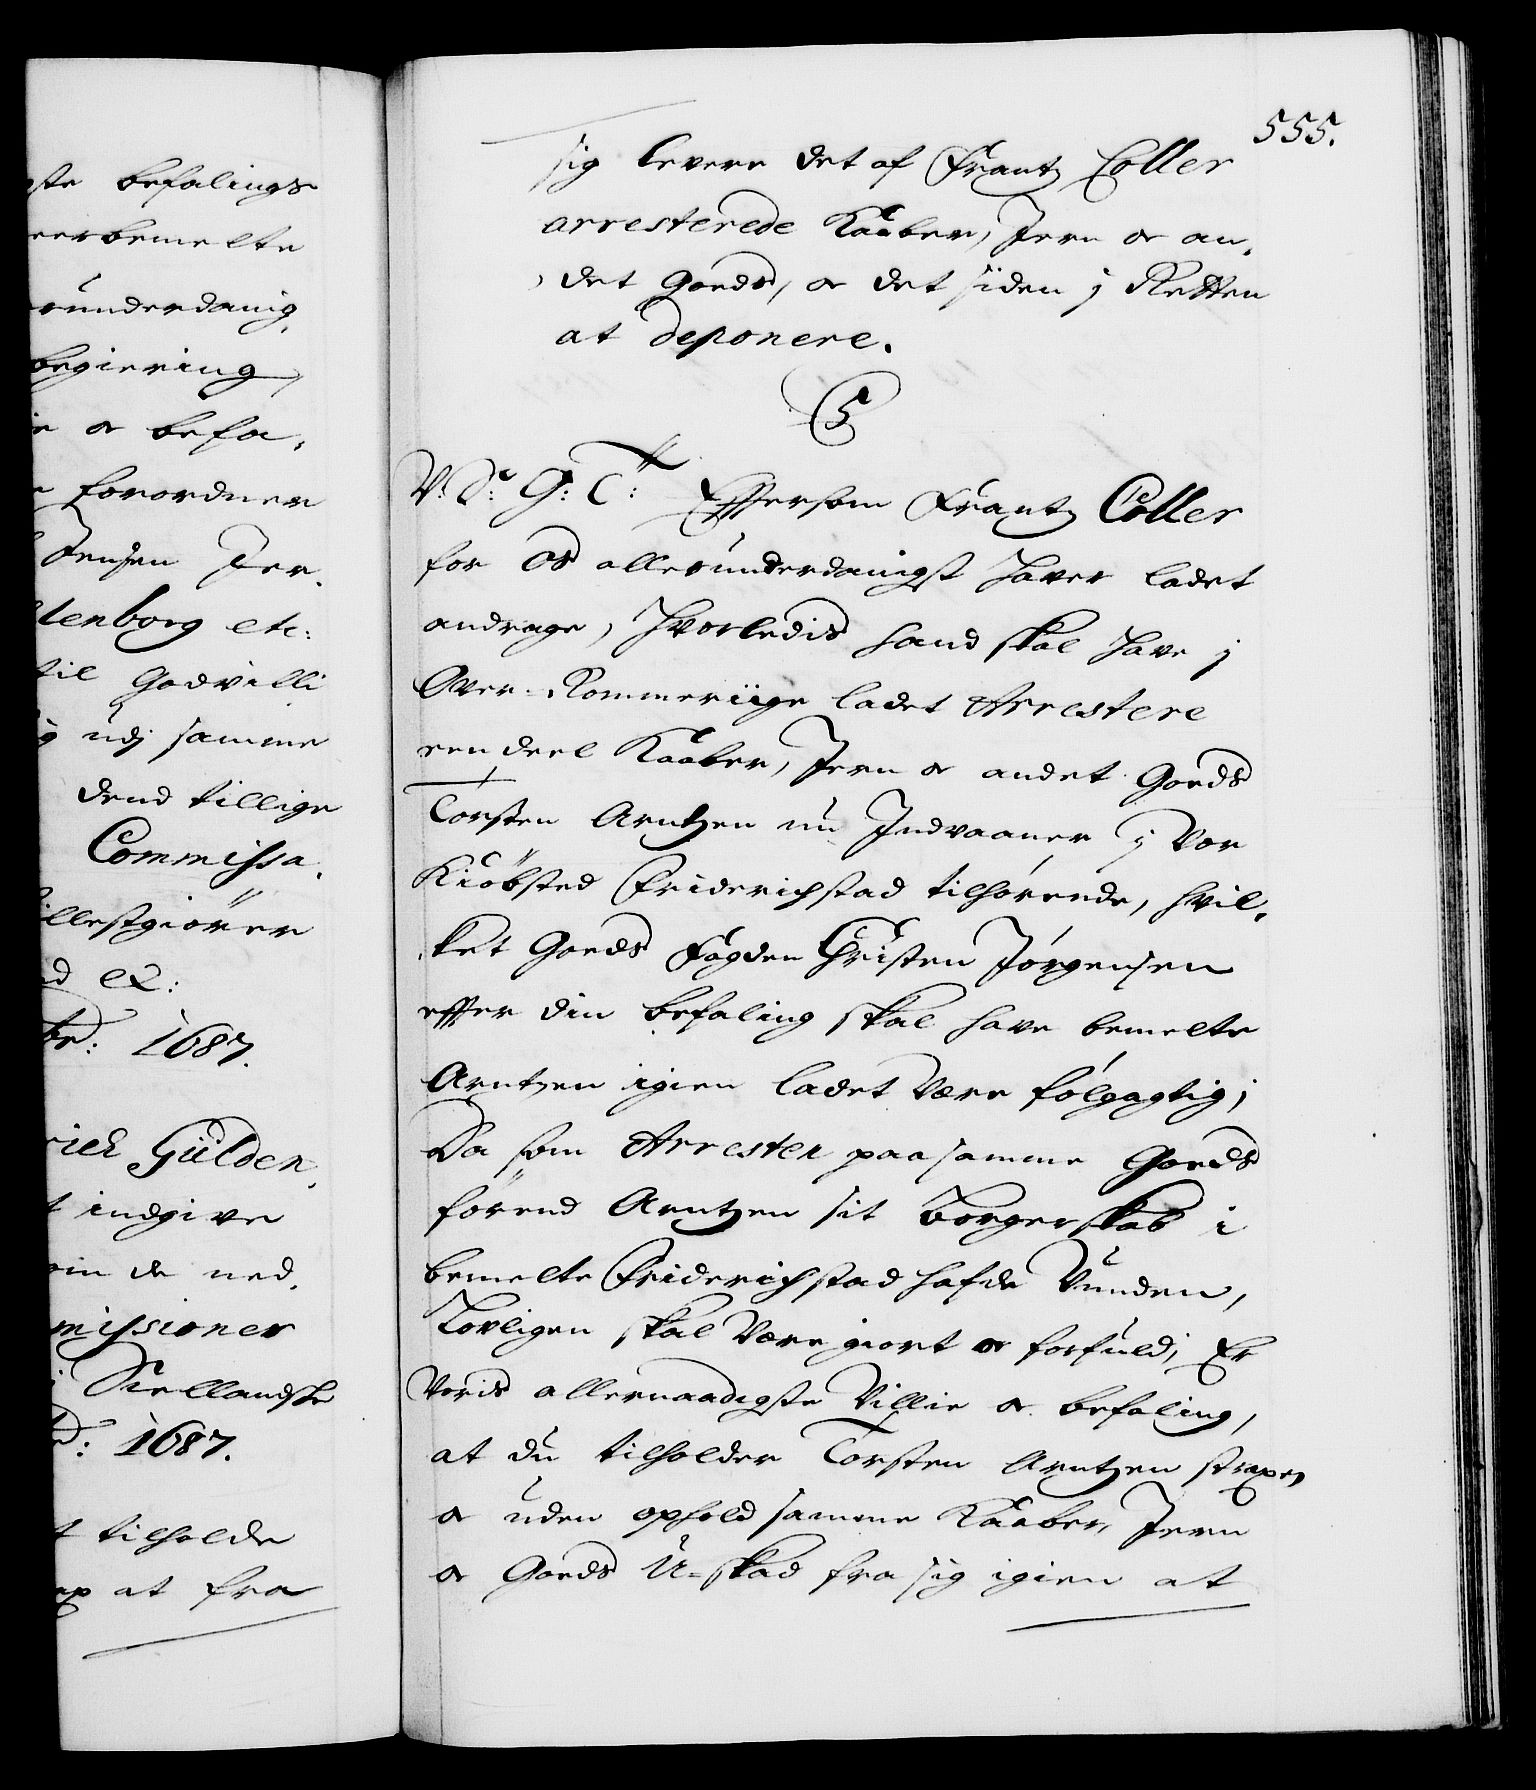 gste befalings
eerbemelte
erunderdanig,
begiering,
ie oc befa,
e forordner
Jensen Jer,
ltenborg etc:
til godvilli
g udj samme
dend tillige
Commissa,
illestgiører
d etc:
br: 1687.
rich Gülden,
t indgive
om de ned,
missioner
i Siellandske
d: 1687.
t tilholde
ex at fra
555.
sig levere det af Frantz Coller
arresterede Kaaber, Jern oc an,
det Goeds, oc det siden j Retten
at deponere.
C5
V: S: G: T: Effersom Frantz Coller
for os allerunderdanigst haver ladet
andrage, hvorledis hand skal have j
Over-Rommeriige ladet Arrestere
een deel Kaaber, Jern oc andet Goeds
Torsten Arntzen nu Indvaaner j Vor
Kiöbsted Friderichstad tilhörende, hvil,
ket Goeds Fogden Christen Jørgensen
effter din befaling skal have bemelte
Arntzen igien ladet være følgagtig;
Da som Arresten paa samme Goeds
förend Arntzen sit Borgerskab i
bemelte Friderichstad hafde Vunden,
Lovligen skal være giort oc forfuld; Er
Voris allernaadigste Villie oc befaling,
at du tilholder Torsten Arntzen straxen
oc uden ophold samme Kaaber, Jern
oc Goeds U-skad fra sig igien at